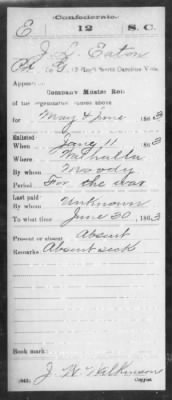 Confederate
E 12 S. C.
J. L. Eaton
Co. G, 12 Reg't South Carolina Vols.
Appears on
Company Muster Roll
of the organization named above
for May & June 1863
Enlisted:
When June 11 186
Where Walhalla
By whom Moody
Period For the war
Last paid:
By whom Unknown
To what time June 30, 1863
Present or absent Absent
Remarks: Absent sick
Book mark:
J. W. Wilkinson
(642) Copyist